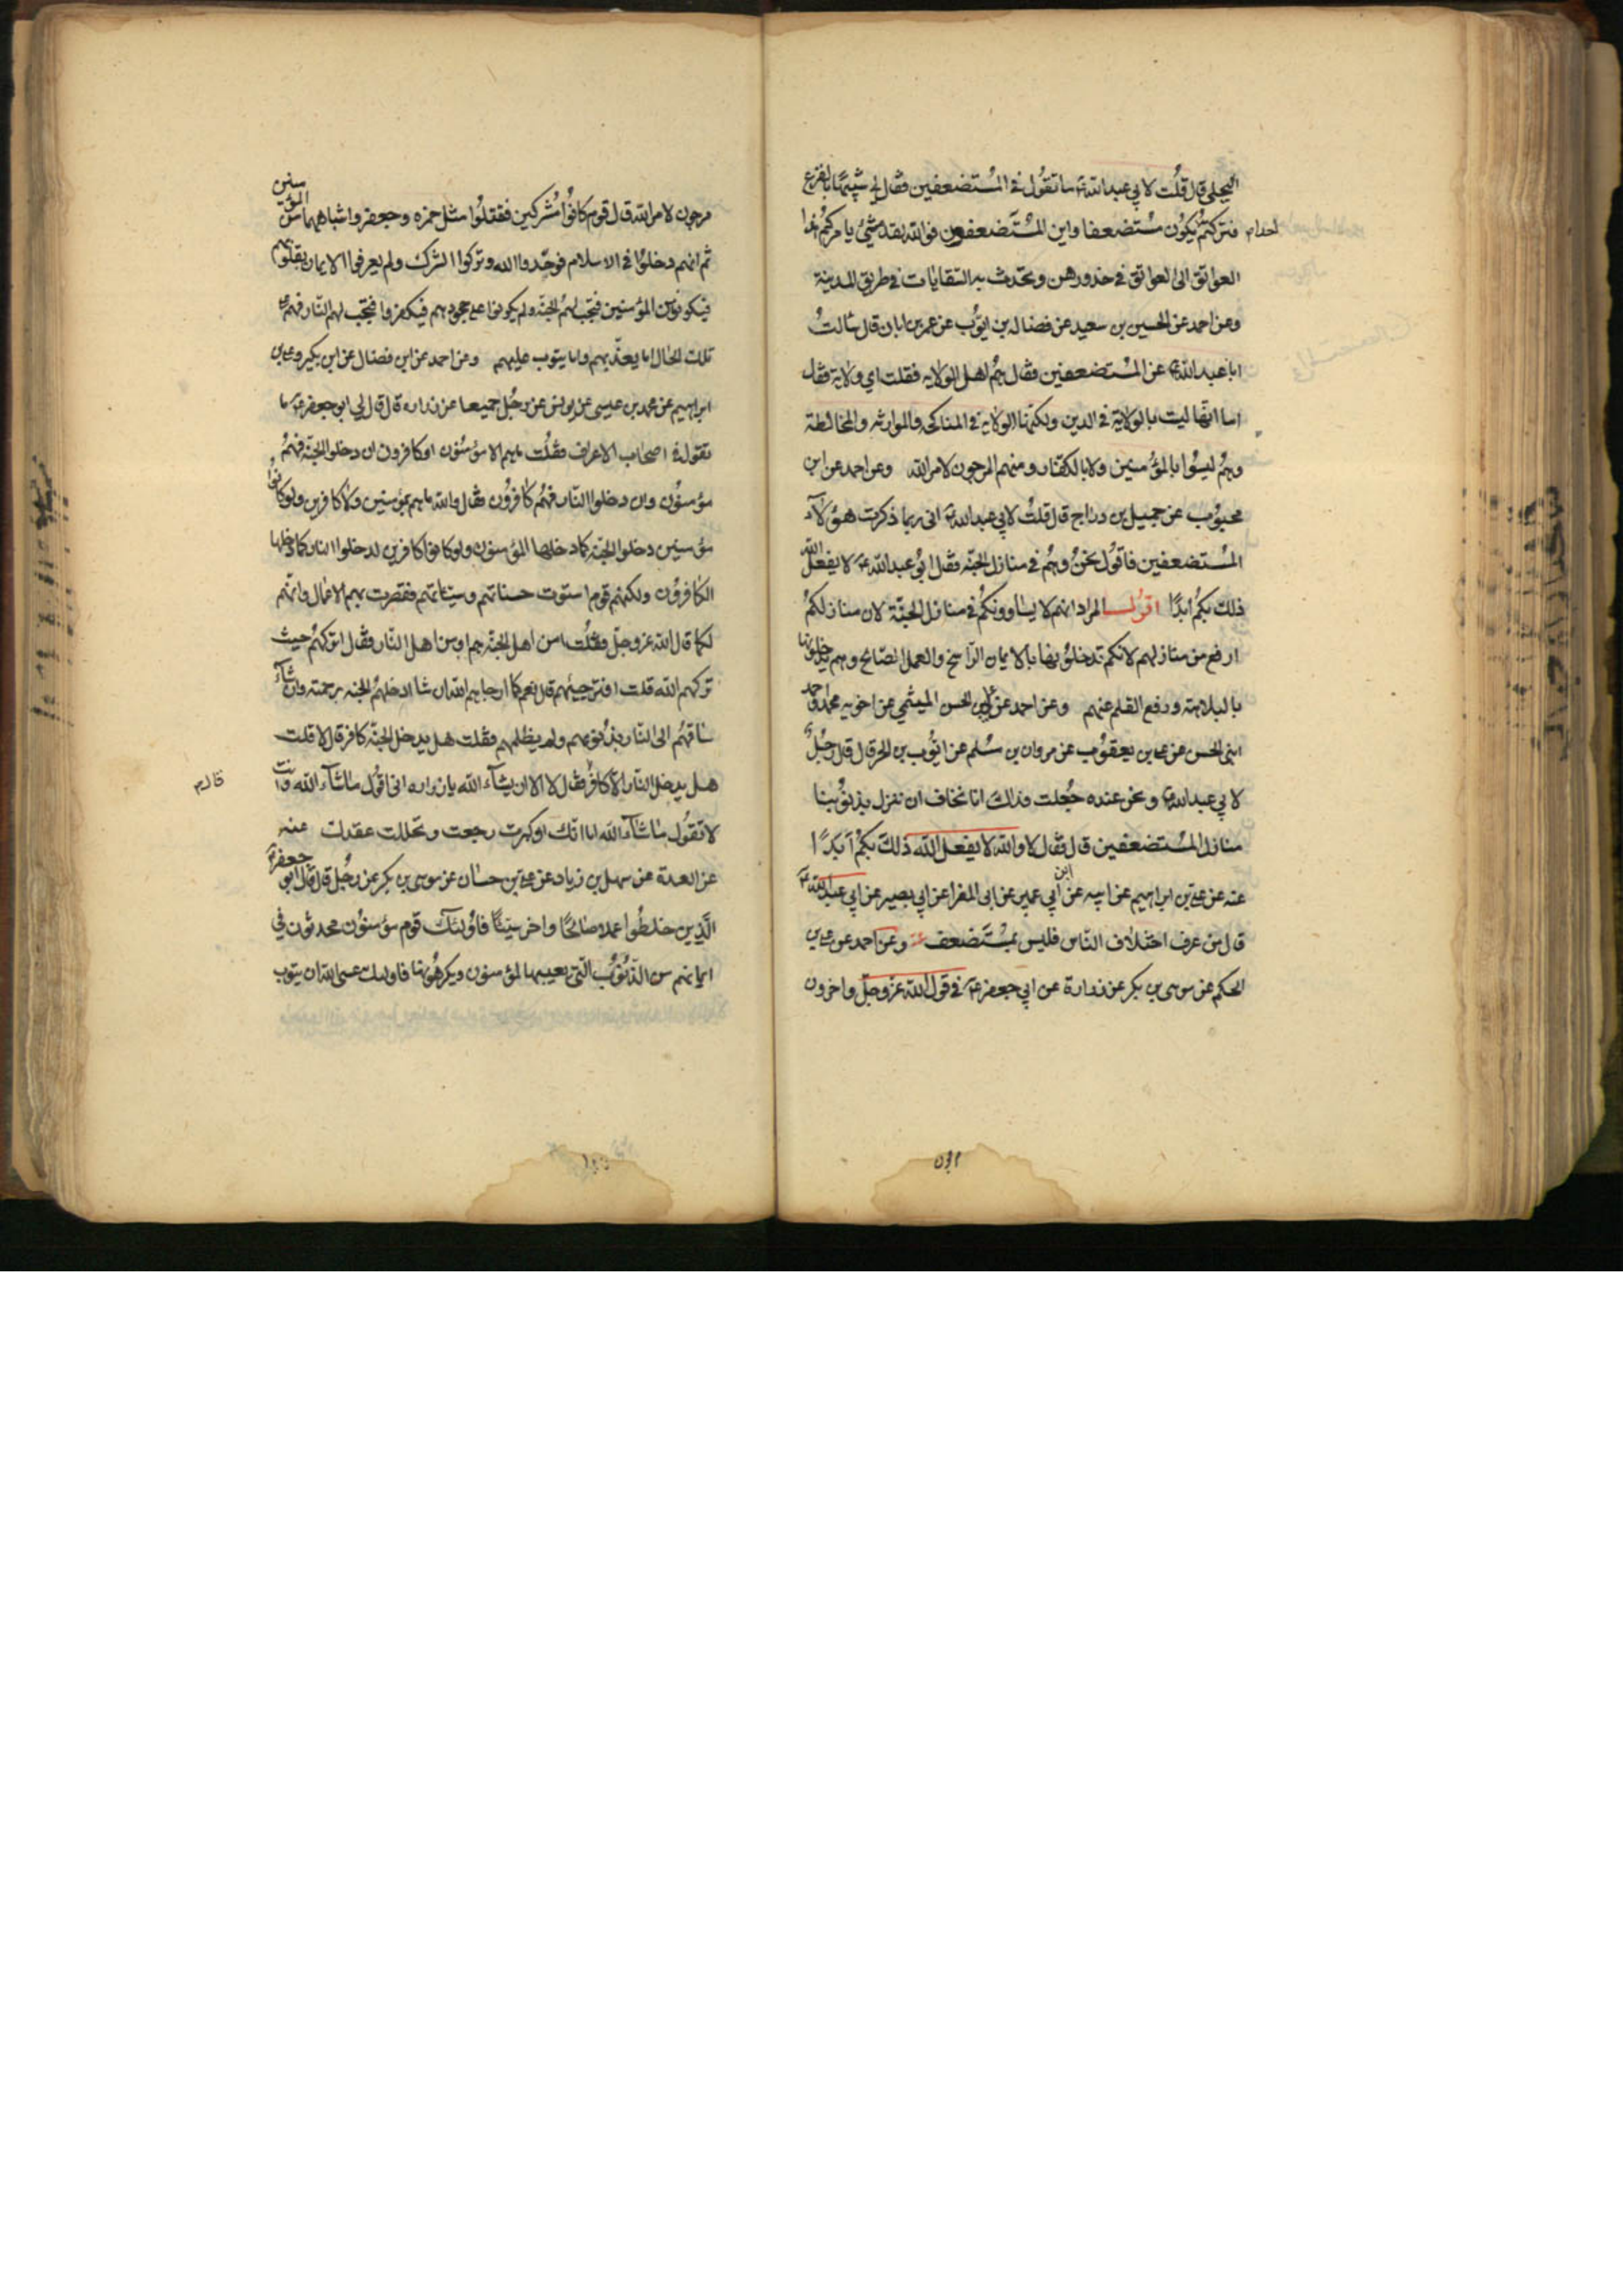 البجلي قال قلت لابي عبد الله ع ما تقول في المستضعفين فقال لي شبيها بالفزع
فتركتم يكون مستضعفا واين المستضعفون فوالله لقد مشى بامركم هذا
احدا م
العواتق الى العواتق في خدورهن وتحدث به السقايات في طريق المدينة
وعن احمد عن الحسين بن سعيد عن فضاله بن ايوب عن عمر بن ابان قال سالت
ابا عبد الله ع عن المستضعفين فقال هم اهل الولايه فقلت اي ولاية فقال
اما انها ليت بالولاية في الدين ولكنها الولاية في المناكحه والموارثه والمخالطة
وهم ليسوا بالمؤمنين ولا بالكفار ومنهم المرجون لامر الله وعن احمد عن ابن
محبوب عن جميل بن دراج قال قلت لابي عبد الله ع اني ربما ذكرت هؤلاء
المستضعفين فاقول نحن وهم في منازل الجنه فقال ابو عبد الله ع لا يفعل الله
ذلك بكم ابدا اقول المراد انهم لا يساوونكم في منازل الجنة لان منازلكم
ارفع من منازلهم لانكم تدخلونها بالايمان الراسخ والعمل الصالح وهم يدخلونها
بالبلاهة ورفع القلم عنهم وعن احمد عن علي بن الحسن الميثمي عن اخويه محمد واحمد
ابني الحسن عن علي بن يعقوب عن مروان بن مسلم عن ايوب بن الحر قال قال رجل
لابي عبد الله ع ونحن عنده جعلت فداك انا نخاف ان ننزل بذنوبنا
منازل المستضعفين قال فقال لا والله لا يفعل الله ذلك بكم ابدا
عنه عن علي بن ابراهيم عن ابيه عن ابن ابي عمير عن ابي المغرا عن ابي بصير عن ابي عبد الله ع
قال من عرف اختلاف الناس فليس بمستضعف وعن احمد عن علي بن
الحكم عن موسى بن بكر عن زرارة عن ابي جعفر ع في قول الله عز وجل واخرون
مرجون
مرجون لامر الله قال قوم كانوا مشركين فقتلوا مثل حمزه وجعفر واشباههما من المؤمنين
ثم انهم دخلوا في الاسلام فوحدوا الله وتركوا الشرك ولم يعرفوا الايمان بقلوبهم
فيكونوا من المؤمنين فتجب لهم الجنه ولم يكونوا على جحودهم فيكفروا فتجب لهم النار فهم على
تلك الحال اما يعذبهم واما يتوب عليهم وعن احمد عن ابن فضال عن ابن بكير وعلي بن
ابراهيم عن محمد بن عيسى عن يونس عن رجل جميعا عن زراره قال قال لي ابو جعفر ع ما
تقول في اصحاب الاعراف فقلت ما هم الا مؤمنون او كافرون ان دخلوا الجنة فهم
مؤمنون وان دخلوا النار فهم كافرون فقال والله ما هم بمؤمنين ولا كافرين ولو كانوا
مؤمنين دخلوا الجنه كما دخلها المؤمنون ولو كانوا كافرين لدخلوا النار كما دخلها
الكافرون ولكنهم قوم استوت حسناتهم وسيئاتهم فقصرت بهم الاعمال وانهم
لكما قال الله عز وجل فقلت امن اهل الجنة هم او من اهل النار فقال اتركهم حيث
تركهم الله قلت افترجيهم قال نعم كما ارجاهم الله ان شا ادخلهم الجنه برحمته وان شاء
ساقهم الى النار بذنوبهم ولم يظلمهم فقلت هل يدخل الجنة كافر قال لا قلت
هل يدخل النار الا كافر فقال لا الا ان يشاء الله يا زراره اني اقول ما شاء الله وانت
قال م
لا تقول ما شاء الله اما انك ان كبرت رجعت وتحللت عقدك عنه
عن العدة عن سهل بن زياد عن علي بن حسان عن موسى بن بكر عن رجل قال قال ابو جعفر ع
الذين خلطوا عملا صالحا واخر سيئا فاولئك قوم مؤمنون يحدثون في
ايمانهم من الذنوب التي يعيبها المؤمنون ويكرهونها فاولئك عسى الله ان يتوب